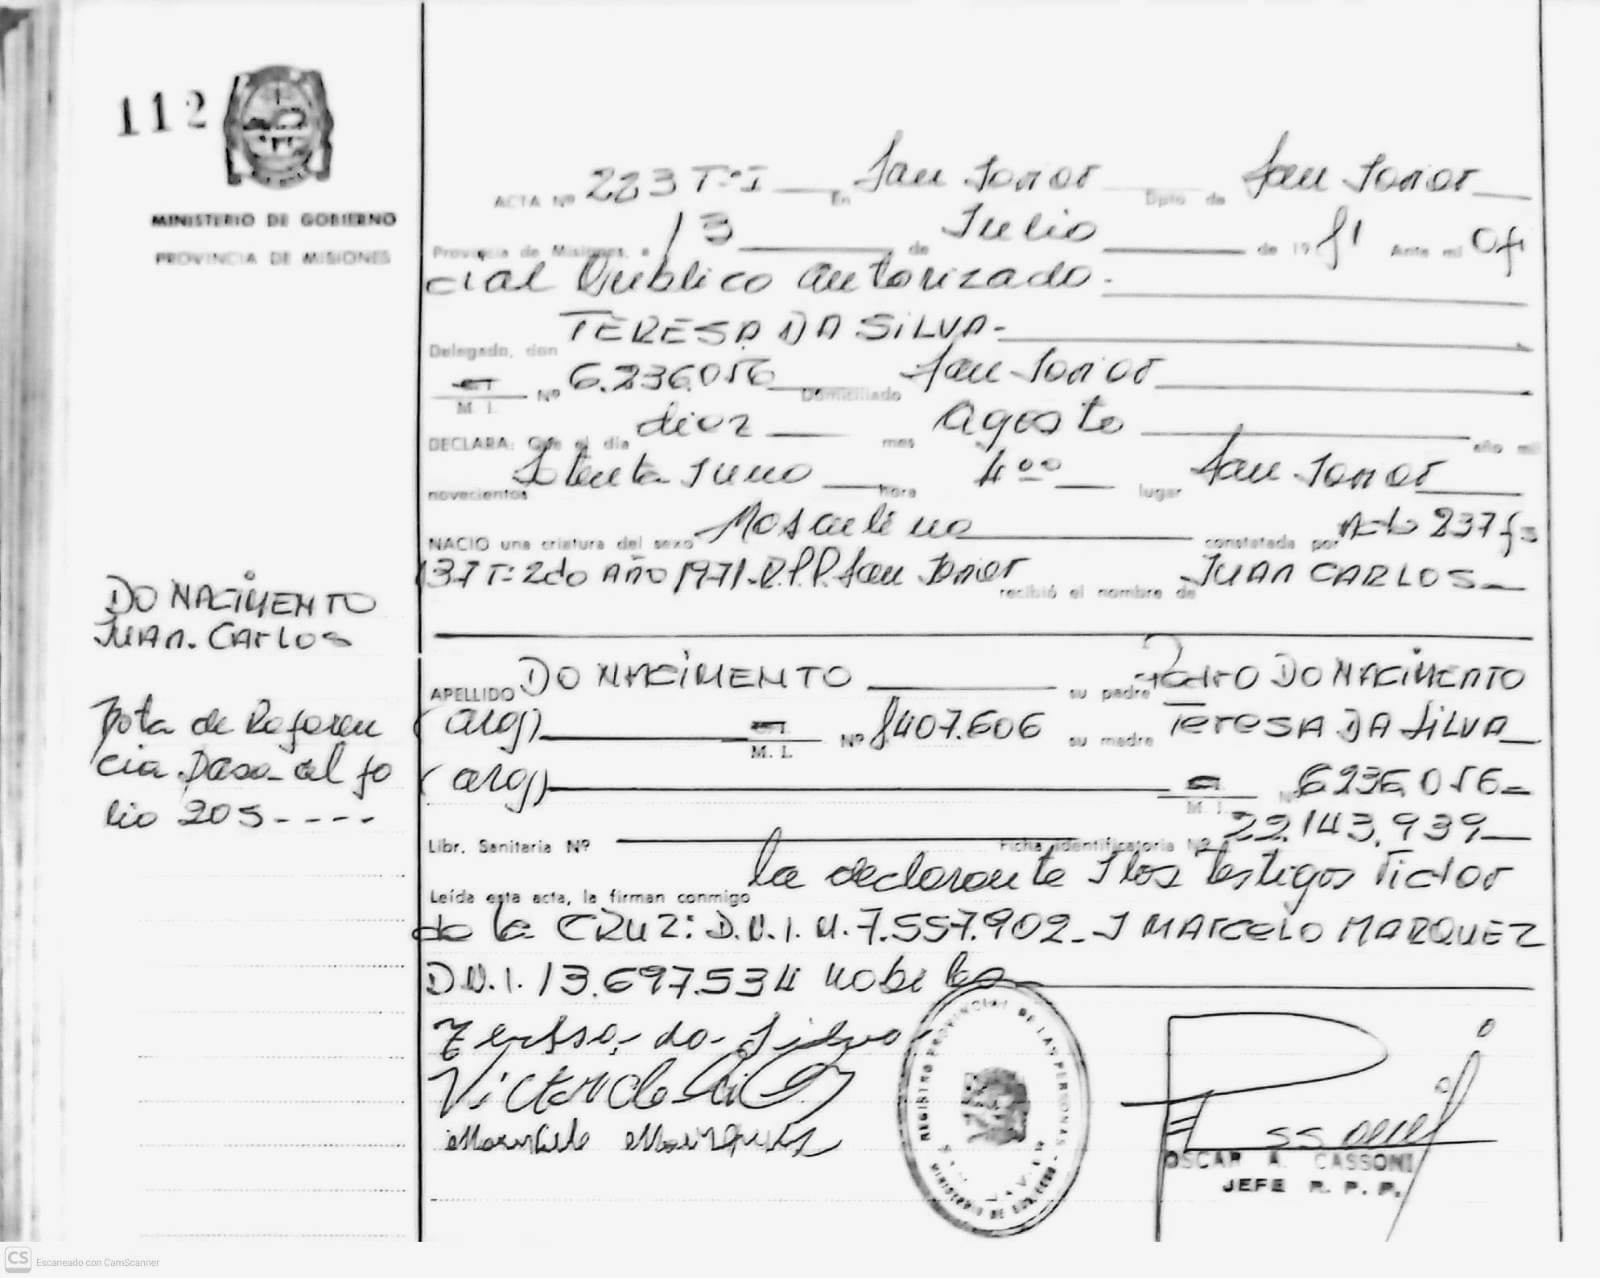 112
MINISTERIO DE GOBIERNO
PROVINCIA DE MISIONES
ACTA Nº 223 T:I En San Javier Dpto de San Javier
Provincia de Misiones, a 13 de Julio de 1981 Ante mi Ofi
cial Publico autorizado.
Delegado, don TERESA DA SILVA.
M. I. Nº 6.236.056 Domiciliado San Javier
DECLARA: Que el día diez mes agosto año mil
novecientos setenta y uno hora 4ºº lugar San Javier
NACIO una criatura del sexo Masculino constatada por Acto 237 fs
137 T: 2do Año 1971. R.P.P. San Javier recibió el nombre de JUAN CARLOS
DO NACIMENTO
JUAN. CARLOS
APELLIDO DO NACIMENTO su padre Pedro DO NACIMENTO
(arg) M. I. Nº 8407.606 su madre Teresa DA SILVA
(arg) M. I. Nº 6236.056
Nota de Referen
cia Pasa al fo
lio 205 - - - -
Libr. Sanitaria Nº Ficha identificatoria Nº 22.143.939
Leída esta acta, la firman conmigo la declarante y los testigos Victor
de la CRUZ: D.N.I. N. 7.557.902 - y MARCELO MARQUEZ
D.N.I. 13.697.534
Teressa da Silva
Victor de la Cruz
Marcelo Marquez
REGISTRO PROVINCIAL DE LAS PERSONAS
MINISTERIO DE GOBIERNO
OSCAR A. CASSONI
JEFE R. P. P.
CS Escaneado con CamScanner